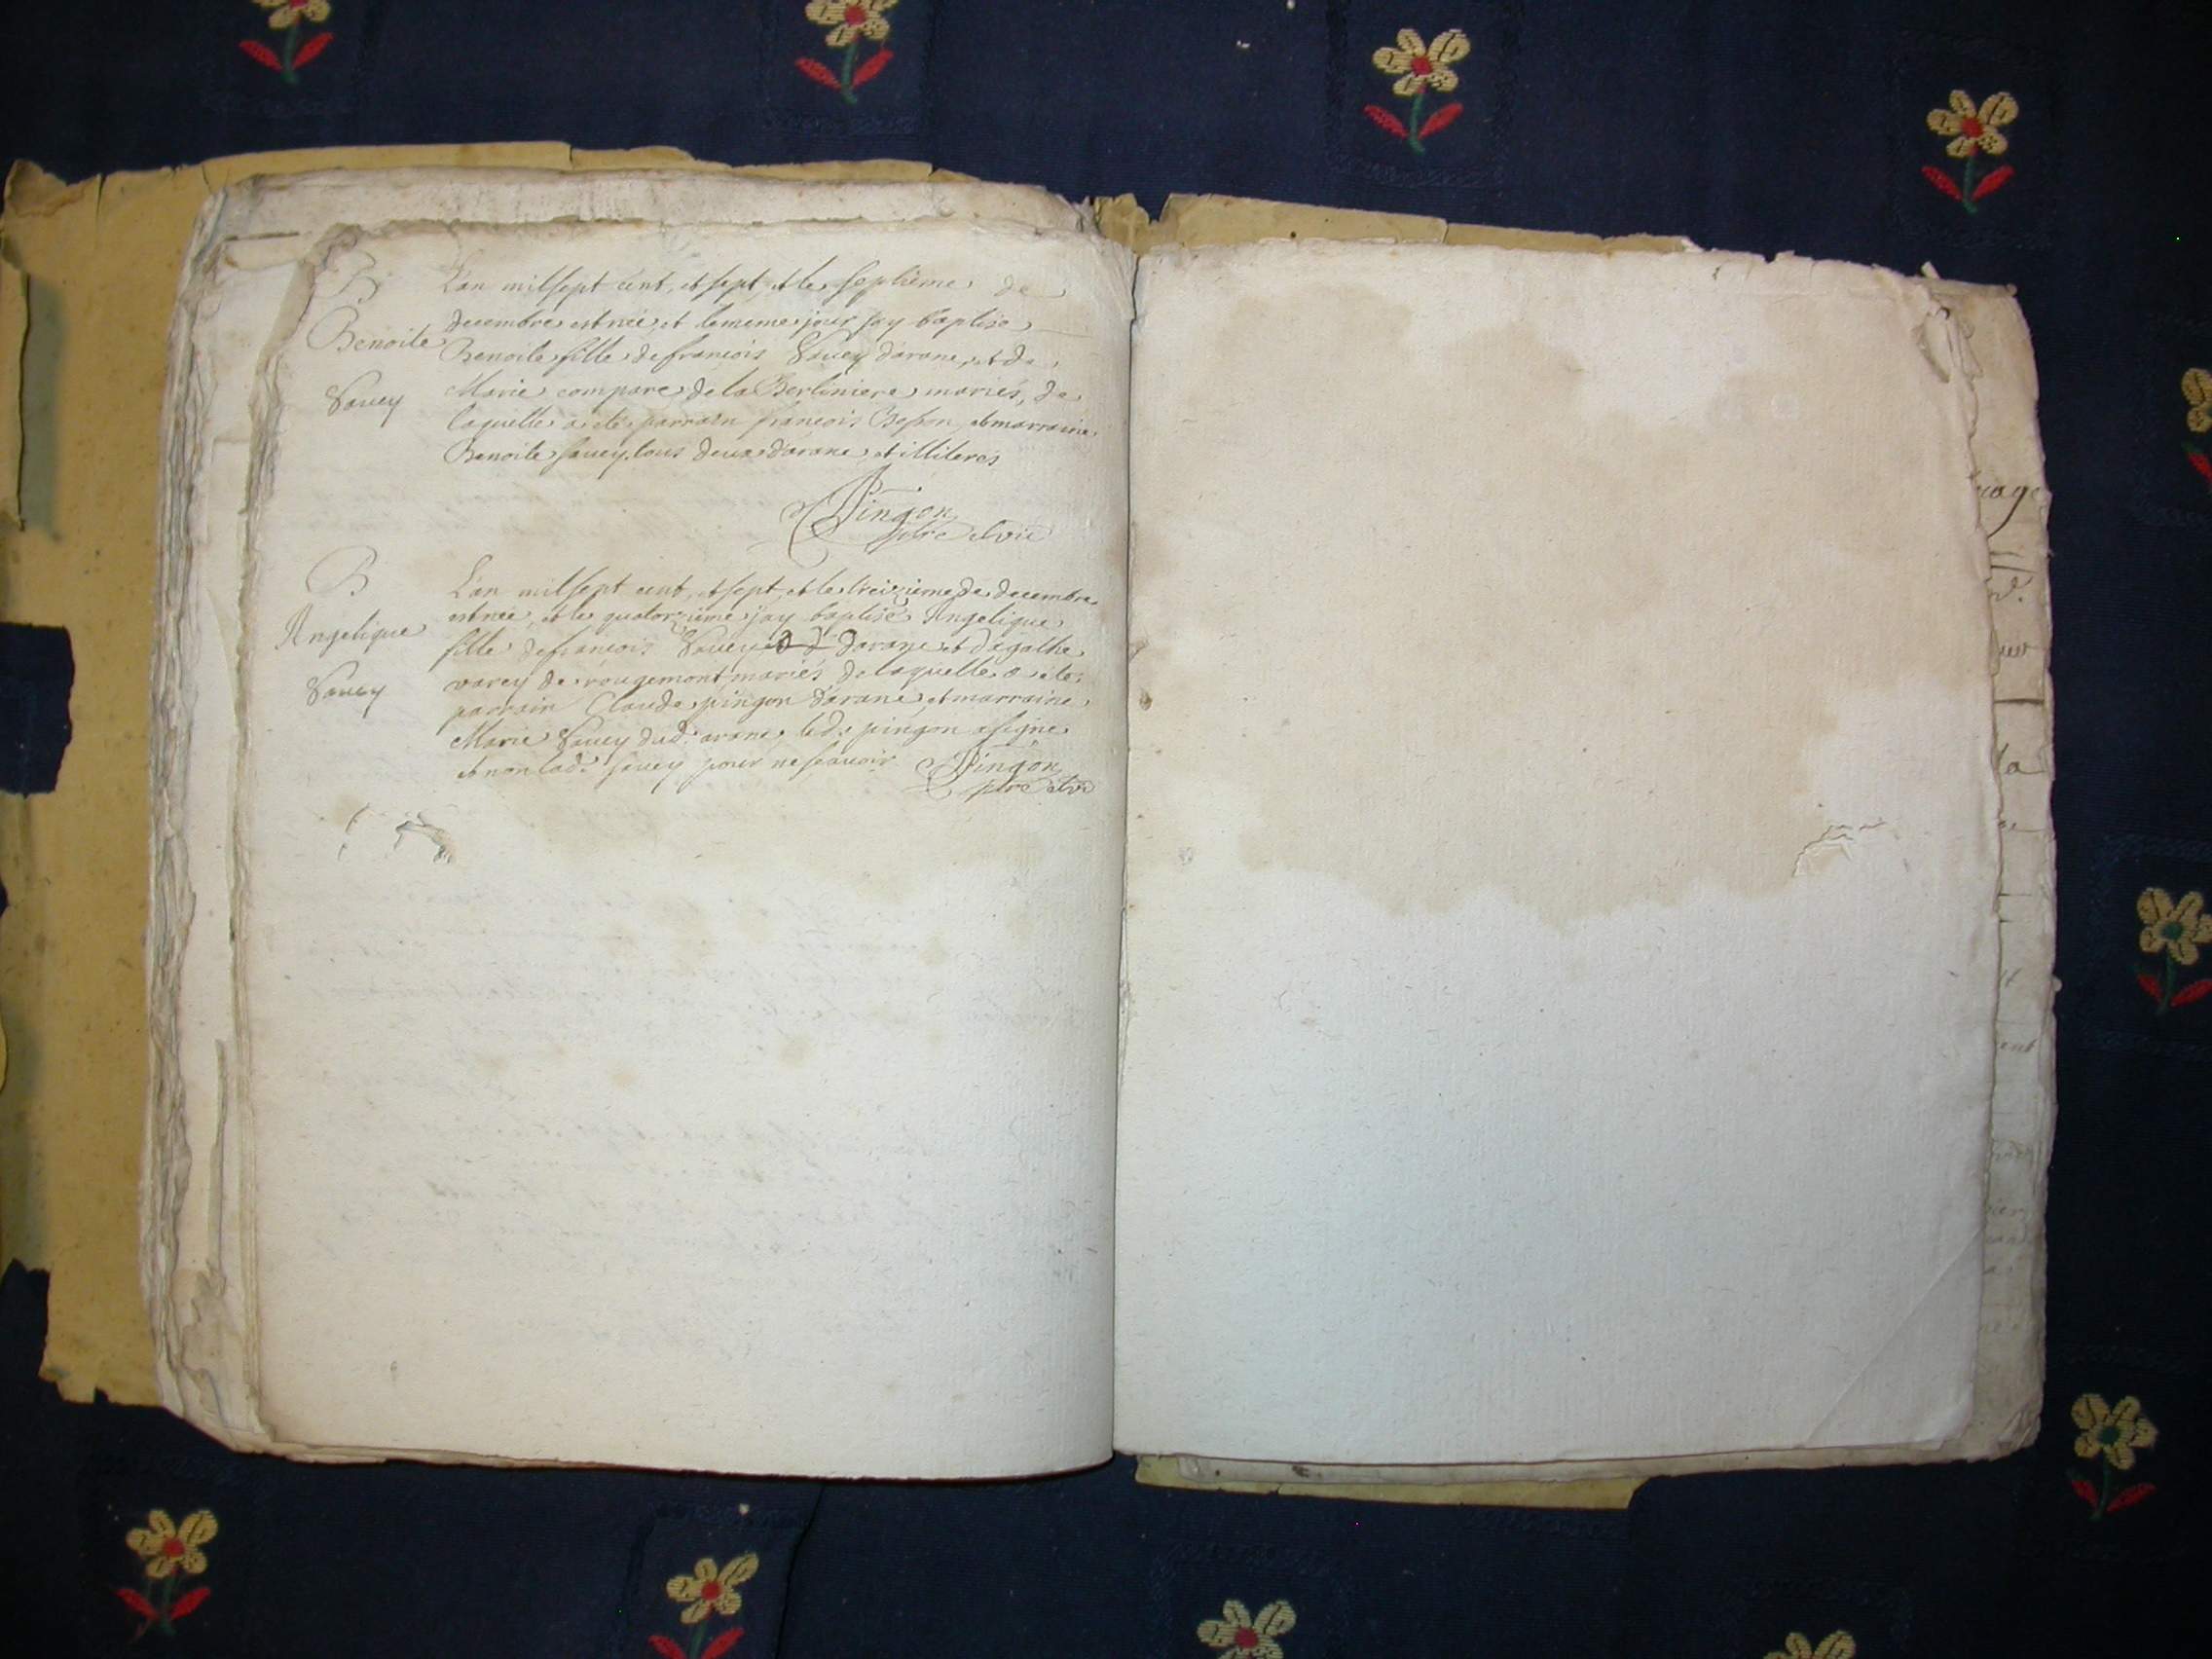 B
Benoite
Savey
L'an mil sept cent, et sept, et le septième de
decembre est neé, et le meme jour jay baptisé
Benoite fille de francois Savey d'arane, et de
Marie compare de la Berliniere mariés, de
laquelle a été parrain francois Besson, et marraine
Benoite savey tous deux d'arane et illiterés
Pingon
ptre et vic
B
Angelique
Savey
L'an mil sept cent, et sept, et le treizième de decembre
est neé, et le quatorzième jay baptisé Angelique
fille de francois Savey d'arane et d'agathe
varey de rougemont mariés de laquelle a été
parrain Claude pingon d'arane, et marraine
Marie Savey dud. arane, led. pingon a signé
et non lad. savey pour ne scavoir
Pingon
ptre et vic